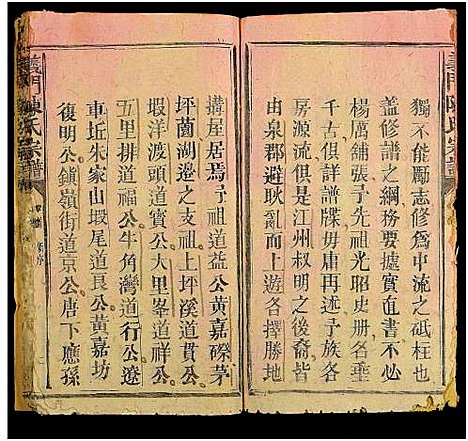 義門陳氏宗譜
獨不能勵志修爲中流之砥柱也
蓋修譜之綱務要據實直書不必
楊厲舖張予先祖光昭史册各垂
千古俱詳譜牒毋庸再述予族各
房源流俱是江州叔明之後裔皆
由泉郡避耿亂而上游各擇勝地
搆屋居焉予祖道益公黃嘉磜茅
坪蘭湖邊之支祖上坪溪道貫公
塅洋渡頭道賓公大里峯道祥公
五里排道福公牛角灣道行公遼
車坵朱家山塅尾道良公黃嘉坊
復明公鎮嶺街道京公唐下應孫
義門陳氏宗譜